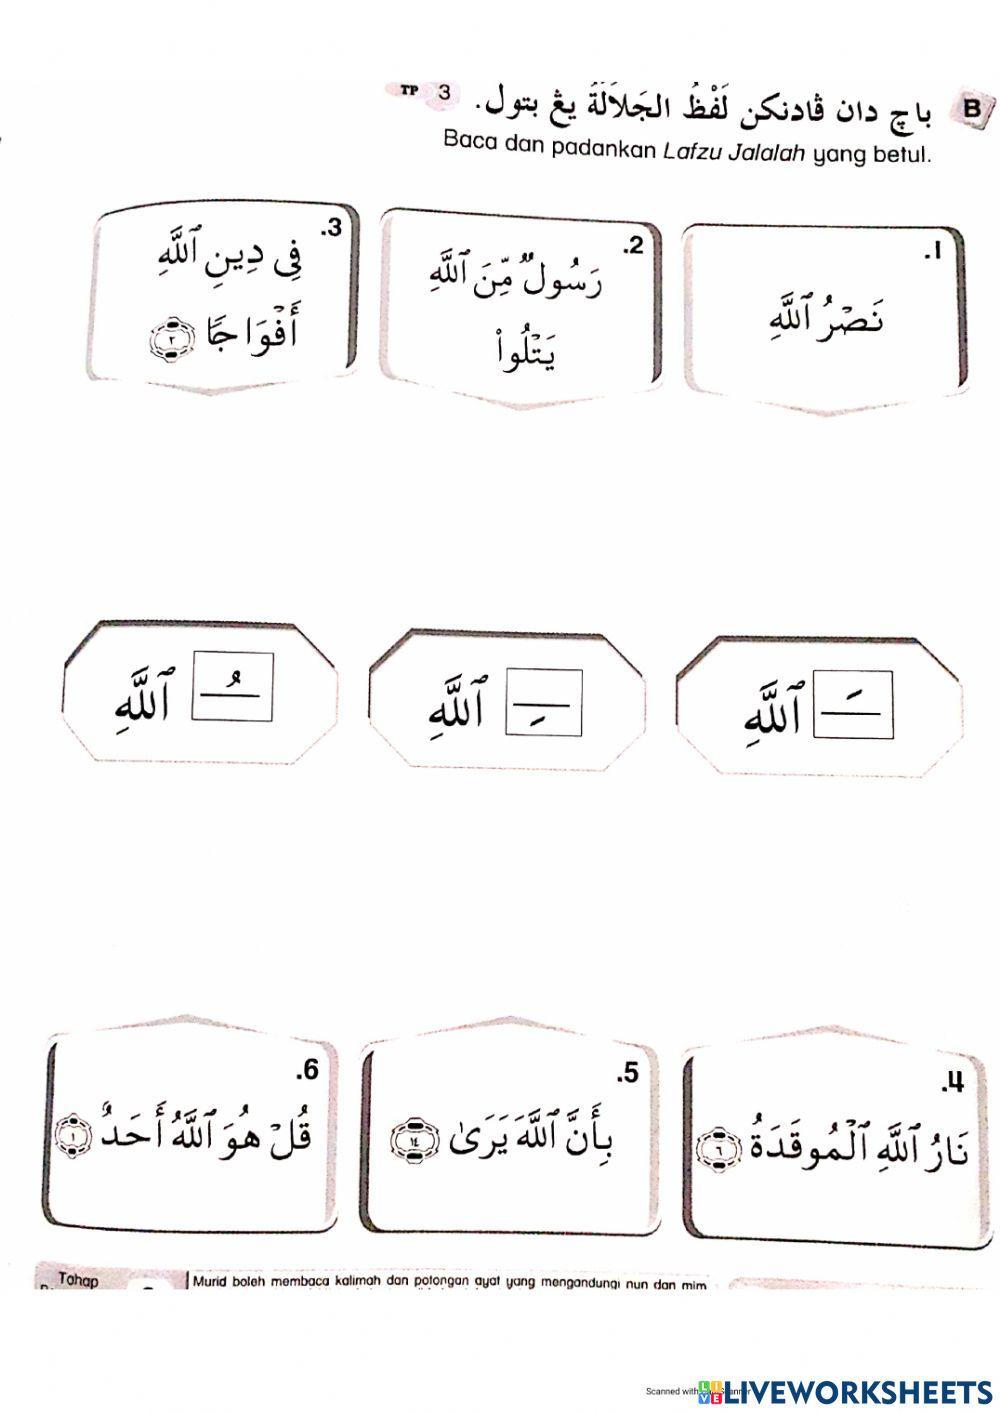 B باچ دان ڤادنکن لَفْظُ الجَلاَلَةُ يڠ بتول. TP 3
Baca dan padankan Lafzu Jalalah yang betul.
.1
نَصۡرُ ٱللَّهِ
.2
رَسُولٌ مِّنَ ٱللَّهِ
يَتۡلُواْ
.3
فِي دِينِ ٱللَّهِ
أَفۡوَاجًا ٢
ـَ ٱللَّهِ
ـِ ٱللَّهِ
ـُ ٱللَّهِ
.4
نَارُ ٱللَّهِ ٱلۡمُوقَدَةُ ٦
.5
بِأَنَّ ٱللَّهَ يَرَىٰ ١٤
.6
قُلۡ هُوَ ٱللَّهُ أَحَدٌ ١
Tahap
Murid boleh membaca kalimah dan potongan ayat yang mengandungi nun dan mim
Scanned with
LIVEWORKSHEETS